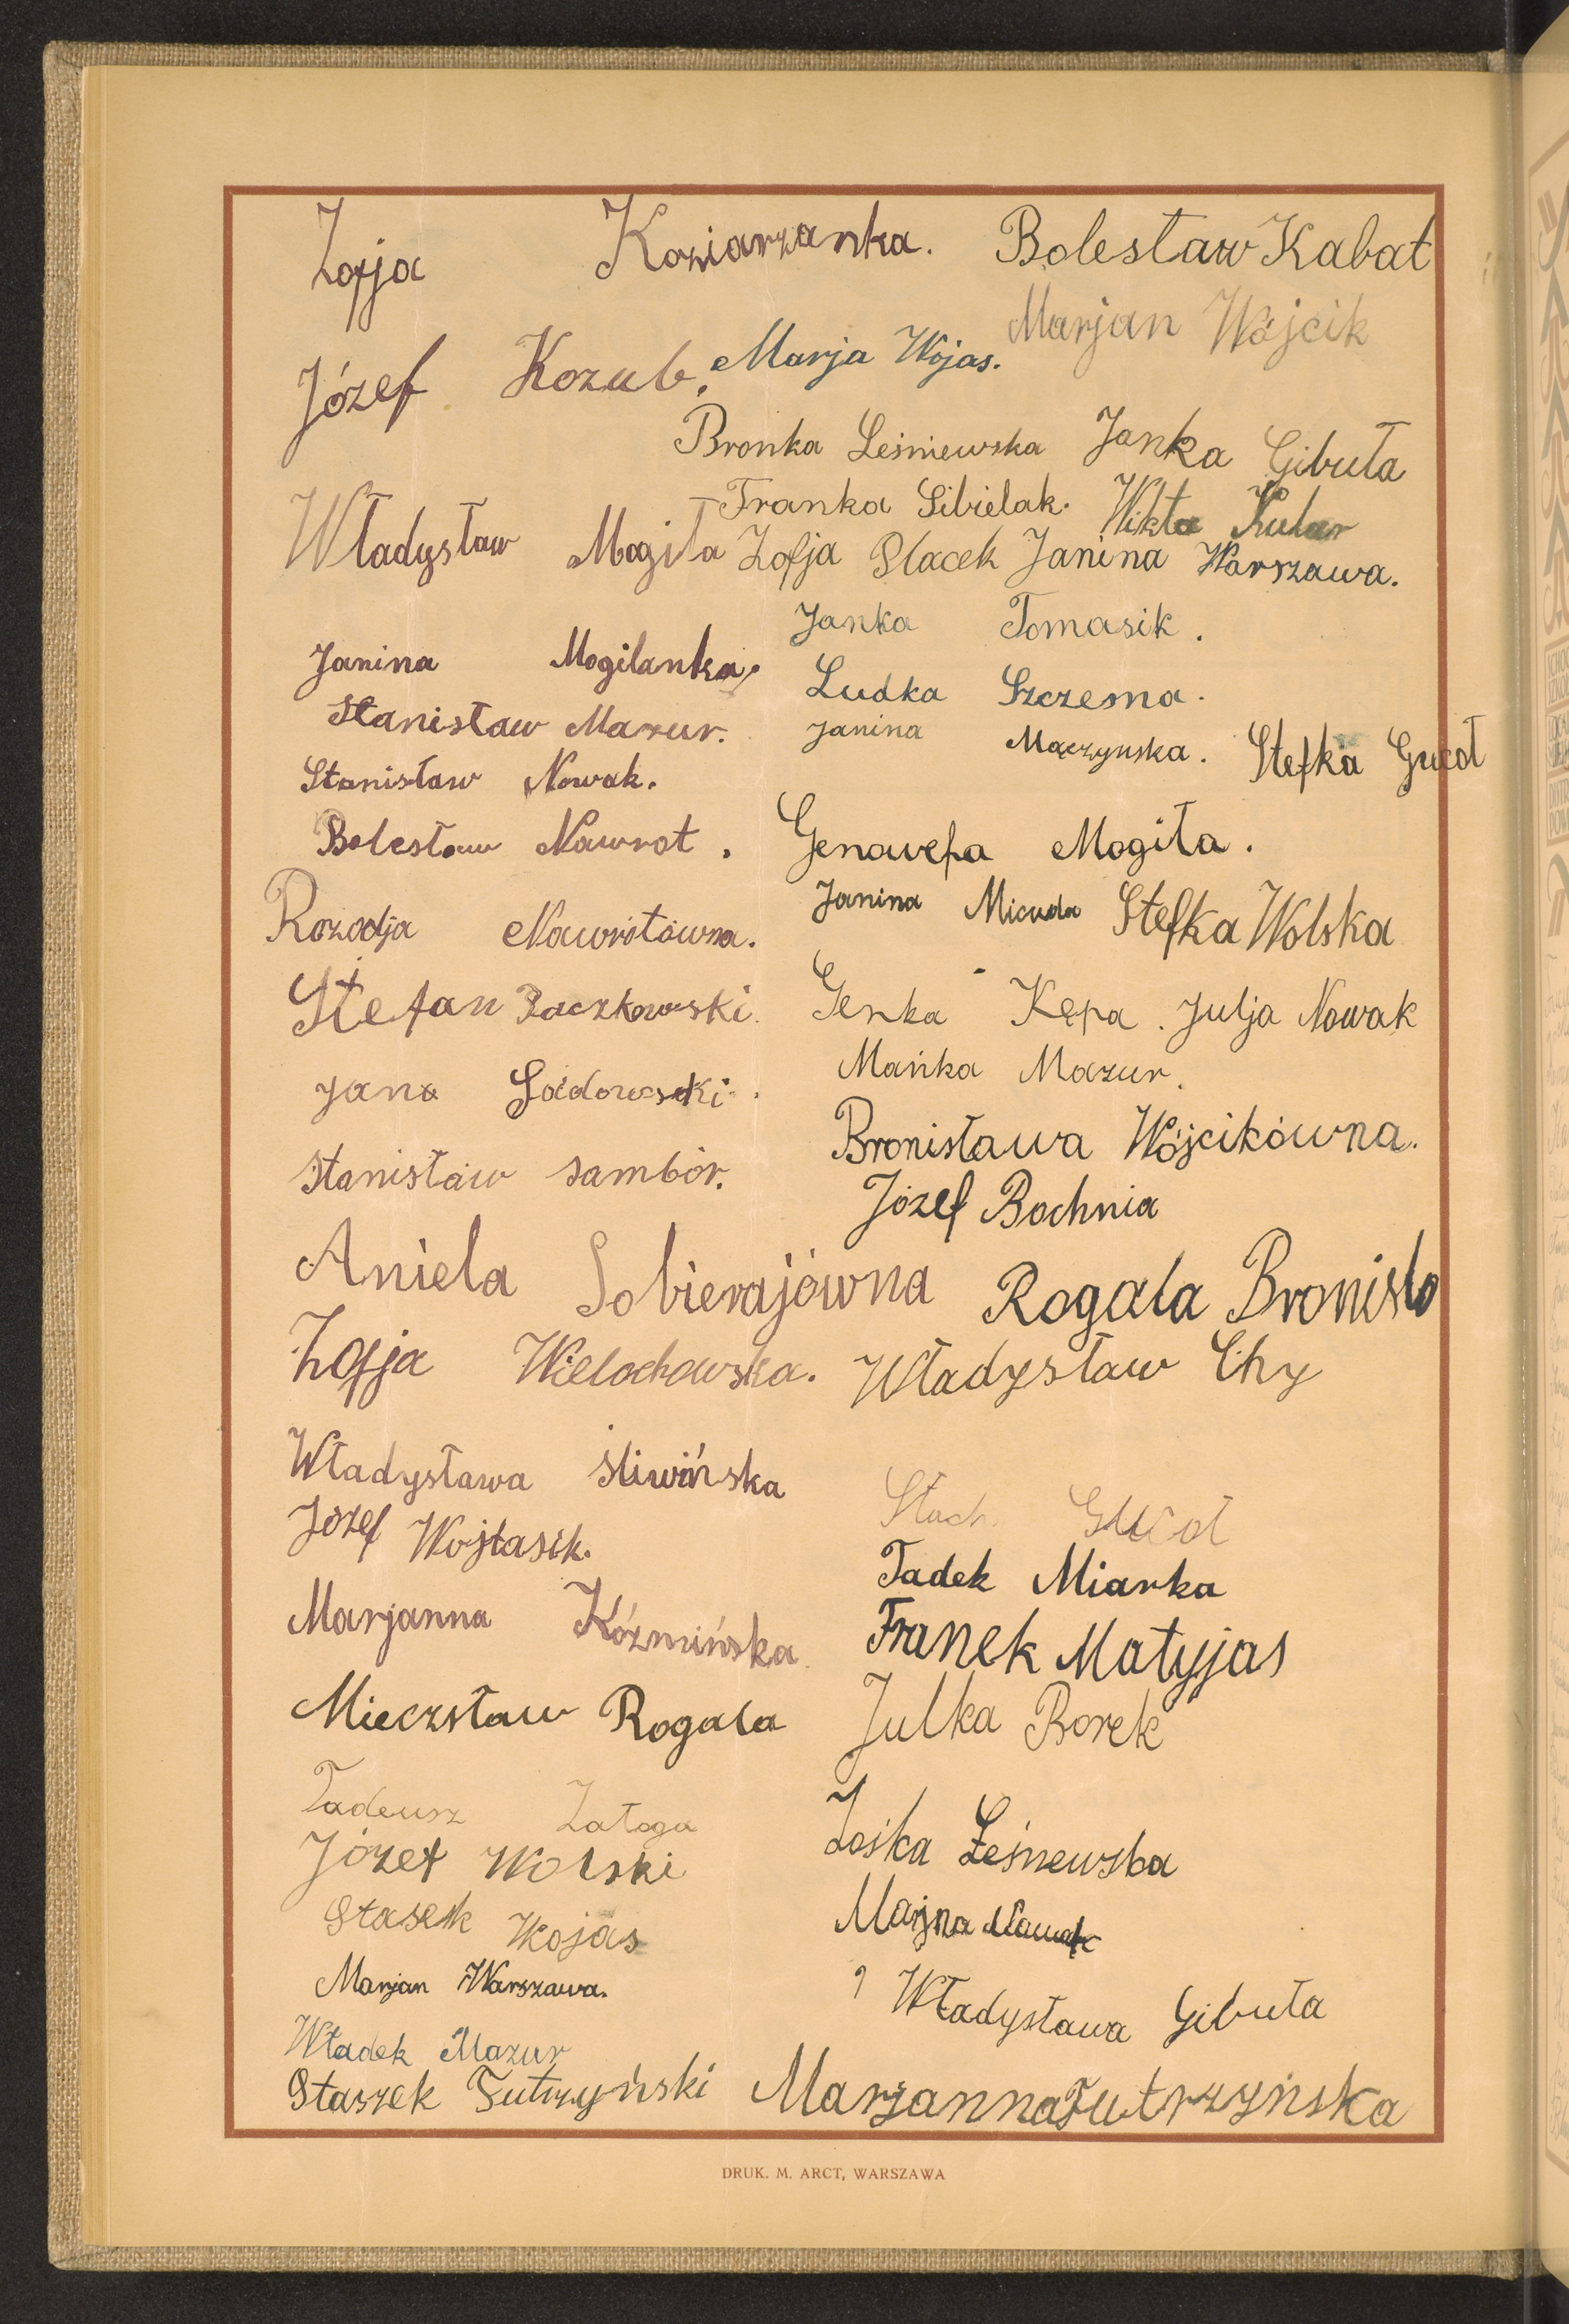 Zofja Koziarzanka. Bolesław Kabat
Marjan Wójcik
Józef Kozub. Marja Wojas.
Bronka Leśniewska Janka Gibuła
Franka Sibielak. Wikta Kular
Władysław Mogiła Zofja Placek Janina Warszawa.
Janka Tomasik.
Janina Mogilanka.
Ludka Szczesna.
Stanisław Mazur.
Janina Mączynska. Stefka Gucoł
Stanisław Nowak.
Bolesław Nawrot. Genowefa Mogiła.
Janina Micuda Stefka Wolska
Rozalja Nawrotówna.
Stefan Raczkowski. Genka Kępa. Julja Nowak
Mańka Mazur.
Jana Sadowski.
Bronisława Wójcikówna.
Stanisław Sambór.
Józef Bochnia
Aniela Sobierajówna Rogala Bronisło
Zofja Wielochowska. Władysław Chy
Władysława Śliwińska
Stach Gucoł
Józef Wojtasik.
Tadek Miarka
Marjanna Koźmińska
Franek Matyjas
Mieczsław Rogala Julka Borek
Tadeusz Załoga
Zośka Leśnewska
Józef Wolski
Stasek Wojas Marjna
Marjan Warszawa.
Władysława Gibuła
Władek Mazur
Staszek Futrzyński Marjanna Futrzyńska
DRUK. M. ARCT, WARSZAWA